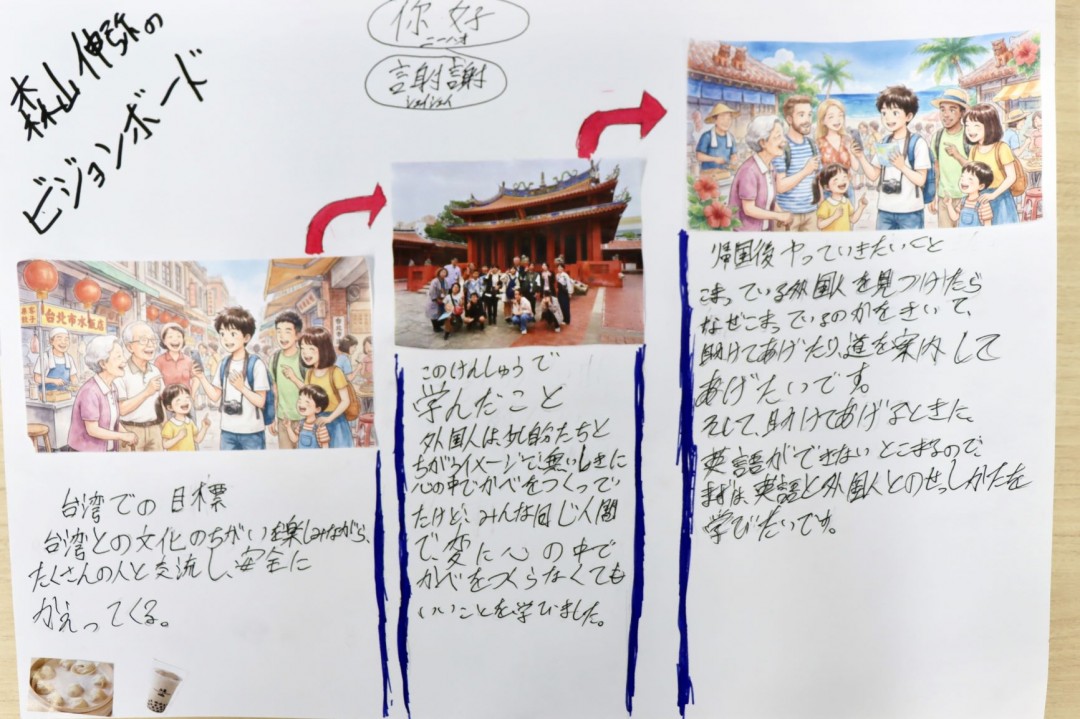 森山伸弥の
ビジョンボード
你好
ニーハオ
謝謝
シェイシェイ
台北市水餃店
台湾での目標
台湾との文化のちがいを楽しみながら、
たくさんの人と交流し、安全に
かえってくる。
このけんしゅうで
学んだこと
外国人は、自分たちと
ちがうイメージで、無いしきに
心の中でかべをつくってい
たけど、みんな同じ人間
で、変に心の中で
かべをつくらなくても
いいことを学びました。
帰国後やっていきたいこと
こまっている外国人を見つけたら
なぜこまっているのかをきいて、
助けてあげたり、道を案内して
あげたいです。
そして、助けてあげるときに、
英語ができないとこまるので、
まずは、英語と外国人とのせっしかたを
学びたいです。